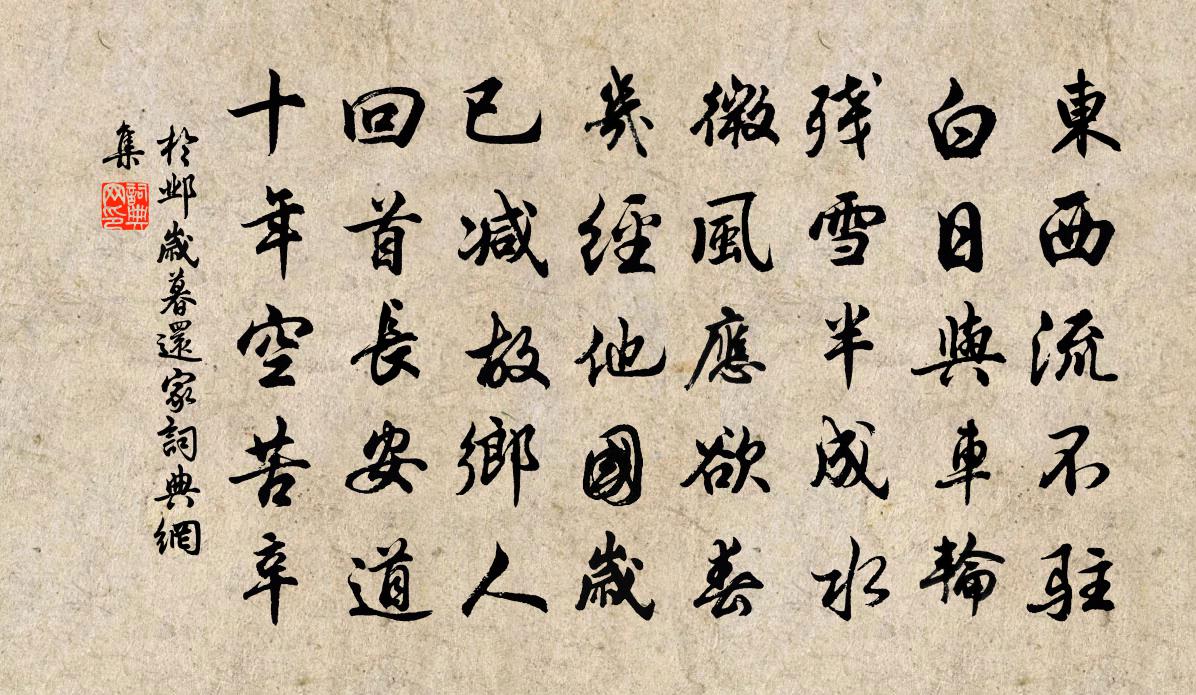 東西流不駐
白日與車輪
残雪半成水
微風應欲春
幾經他國歲
已減故鄉人
回首長安道
十年空苦辛
於鄴歲暮還家詞典網
集
詞典網印